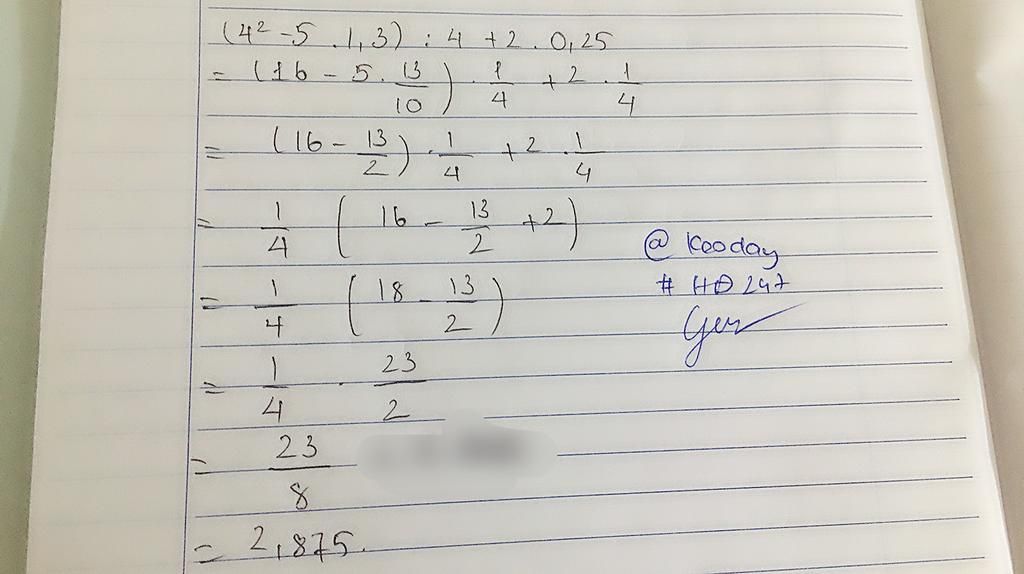 (4² - 5 . 1,3) : 4 + 2 . 0,25
= (16 - 5 . 13/10) . 1/4 + 2 . 1/4
= (16 - 13/2) . 1/4 + 2 . 1/4
= 1/4 (16 - 13/2 + 2)
= 1/4 (18 - 13/2)
= 1/4 . 23/2
= 23/8
= 2,875.
@ Kooday
# HĐ 247